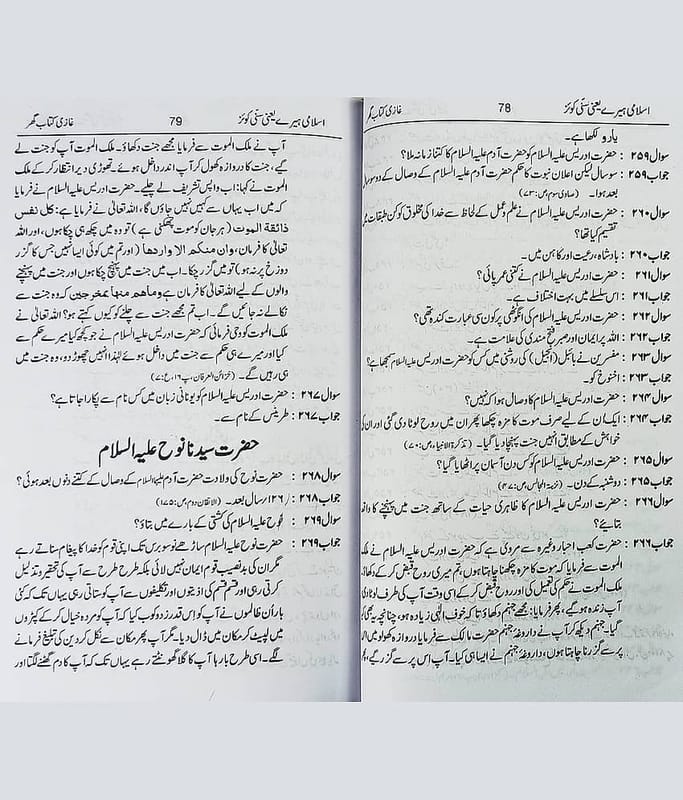 اسلامی ہیرے یعنی سنّی کوئز 78 غازی کتاب گھر
یادو لکھا ہے۔
سوال ۲۵۹ : حضرت ادریس علیہ السلام کو حضرت آدم علیہ السلام کا کتنا زمانہ ملا؟
جواب ۲۵۹ : سو سال لیکن اعلان نبوت کا حکم حضرت آدم علیہ السلام کے وصال کے دو سو سال
بعد ہوا۔ (صاوی سوم، ص: ۷۳)
سوال ۲۶۰ : حضرت ادریس علیہ السلام نے علم و عمل کے لحاظ سے خدا کی مخلوق کو کن طبقات
تقسیم کیا تھا؟
جواب ۲۶۰ : بادشاہ، رعیت اور کاہن میں۔
سوال ۲۶۱ : حضرت ادریس علیہ السلام نے کتنی عمر پائی؟
جواب ۲۶۱ : اس سلسلے میں بہت اختلاف ہے۔
سوال ۲۶۲ : حضرت ادریس علیہ السلام کی انگوٹھی پر کون سی عبارت کندہ تھی؟
جواب ۲۶۲ : اللہ پر ایمان اور صبر فتح مندی کی علامت ہے۔
سوال ۲۶۳ : مفسرین نے بائبل (انجیل) کی روشنی میں کس کو حضرت ادریس علیہ السلام سمجھا ہے؟
جواب ۲۶۳ : اخنوخ کو۔
سوال ۲۶۴ : حضرت ادریس علیہ السلام کا وصال ہوا کہ نہیں؟
جواب ۲۶۴ : ایک آن کے لیے صرف موت کا مزہ چکھا پھر ان میں روح لوٹا دی گئی اور ان کی
خواہش کے مطابق انہیں جنت پہنچا دیا گیا۔ (تذکرۃ الانبیاء، ص: ۷۰)
سوال ۲۶۵ : حضرت ادریس علیہ السلام کو کس دن آسمان پر اٹھایا گیا؟
جواب ۲۶۵ : دوشنبہ کے دن۔ (نزہتہ المجالس، ص: ۴۷)
سوال ۲۶۶ : حضرت ادریس علیہ السلام کا ظاہری حیات کے ساتھ جنت میں پہنچنے کا واقعہ
بتائیے؟
جواب ۲۶۶ : حضرت کعب احبار وغیرہ سے مروی ہے کہ حضرت ادریس علیہ السلام نے ملک
الموت سے فرمایا کہ موت کا مزہ چکھنا چاہتا ہوں، تم میری روح قبض کر کے دکھاؤ
ملک الموت نے حکم کی تعمیل کی اور روح قبض کر کے اسی وقت آپ کی طرف لوٹا دی
آپ زندہ ہو گئے، پھر فرمایا: مجھے جہنم دکھاؤ تا کہ خوف الٰہی زیادہ ہو، چنانچہ یہ بھی
گیا۔ جہنم دیکھ کر آپ نے داروغۂ جہنم حضرت مالک سے فرمایا دروازہ کھولو میں
پر سے گزرنا چاہتا ہوں، داروغۂ جہنم نے ایسا ہی کیا۔ آپ اس پر سے گزر گئے،
اسلامی ہیرے یعنی سنّی کوئز 79 غازی کتاب گھر
آپ نے ملک الموت سے فرمایا مجھے جنت دکھاؤ۔ ملک الموت آپ کو جنت لے
گئے، جنت کا دروازہ کھول کر آپ اندر داخل ہوئے۔ تھوڑی دیر انتظار کر کے ملک
الموت نے کہا: اب واپس تشریف لے چلیے۔ حضرت ادریس علیہ السلام نے فرمایا
کہ میں اب یہاں سے کہیں نہیں جاؤں گا، اللہ تعالیٰ نے فرمایا ہے: کل نفس
ذائقۃ الموت (ہر جان کو موت چکھنی ہے) تو وہ میں چکھ ہی چکا ہوں، اور اللہ
تعالیٰ کا فرمان، وان منکم الا واردھا (اور تم میں کوئی ایسا نہیں جس کا گزر
دوزخ پر نہ ہو) تو میں گزر چکا۔ اب میں جنت میں پہنچ چکا ہوں اور جنت میں پہنچنے
والوں کے لیے اللہ تعالیٰ کا فرمان ہے وماھم منھا بمخرجین کہ وہ جنت سے
نکالے نہ جائیں گے۔ اب تم مجھے جنت سے چلنے کو کیوں کہتے ہو؟ اللہ تعالیٰ نے
ملک الموت کو وحی فرمائی کہ حضرت ادریس علیہ السلام نے جو کچھ کیا میرے حکم سے
کیا اور میرے ہی حکم سے جنت میں داخل ہوئے لہٰذا انہیں چھوڑ دو، وہ جنت میں
ہی رہیں گے۔ (خزائن العرفان، پ ۱۶، ع: ۷)
سوال ۲۶۷ : حضرت ادریس علیہ السلام کو یونانی زبان میں کس نام سے پکارا جاتا ہے؟
جواب ۲۶۷ : طرمیس کے نام سے۔
حضرت سیدنا نوح علیہ السلام
سوال ۲۶۸ : حضرت نوح کی ولادت حضرت آدم علیہ السلام کے وصال کے کتنے دنوں بعد ہوئی؟
جواب ۲۶۸ : ۱۲۶ ؍ سال بعد۔ (الاتقان دوم، ص: ۱۷۵)
سوال ۲۶۹ : نوح علیہ السلام کی کشتی کے بارے میں بتاؤ؟
جواب ۲۶۹ : حضرت نوح علیہ السلام ساڑھے نو سو برس تک اپنی قوم کو خدا کا پیغام سناتے رہے
مگر ان کی بد نصیب قوم ایمان نہیں لائی بلکہ طرح طرح سے آپ کی تحقیر و تذلیل
کرتی رہی اور قسم قسم کی اذیتوں اور تکلیفوں سے آپ کو ستاتی رہی یہاں تک کہ کئی
بار ان ظالموں نے آپ کو اس قدر زدو کوب کیا کہ آپ کو مردہ خیال کر کے کپڑوں
میں لپیٹ کر مکان میں ڈال دیا۔ مگر آپ پھر مکان سے نکل کر دین کی تبلیغ فرمانے
لگے۔ اسی طرح بارہا آپ کا گلا گھونٹتے رہے یہاں تک کہ آپ کا دم گھٹنے لگتا اور